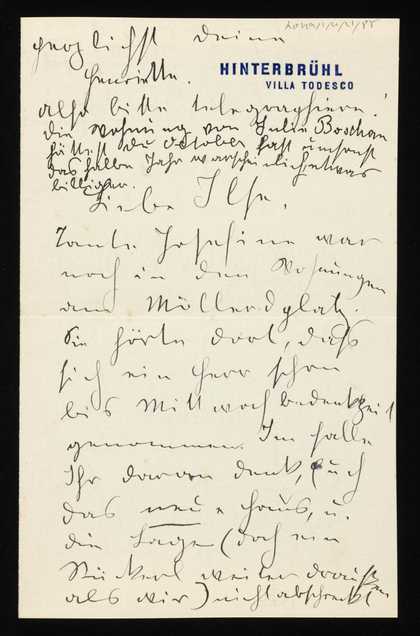 herzlichst deine
Henriette.
HINTERBRÜHL
VILLA TODESCO
also bitte telegraphiere!
die Wohnung von Julie Boschan
hättest du October fast umsonst
das halbe Jahr warscheinlich etwas
billiger.
Liebe Ilse,
Tante Josefine war
noch in den Wohnungen
am Möllerdplatz.
Sie hörte dort, daß
sich ein Herr schon
bis Mittwoch bedenkzeit
genommen. Im Falle
Ihr daran denkt, Euch
das neue Haus, u.
die Lage (doch ein
Stückerl weiter draußen
als wir) nicht abschreckt